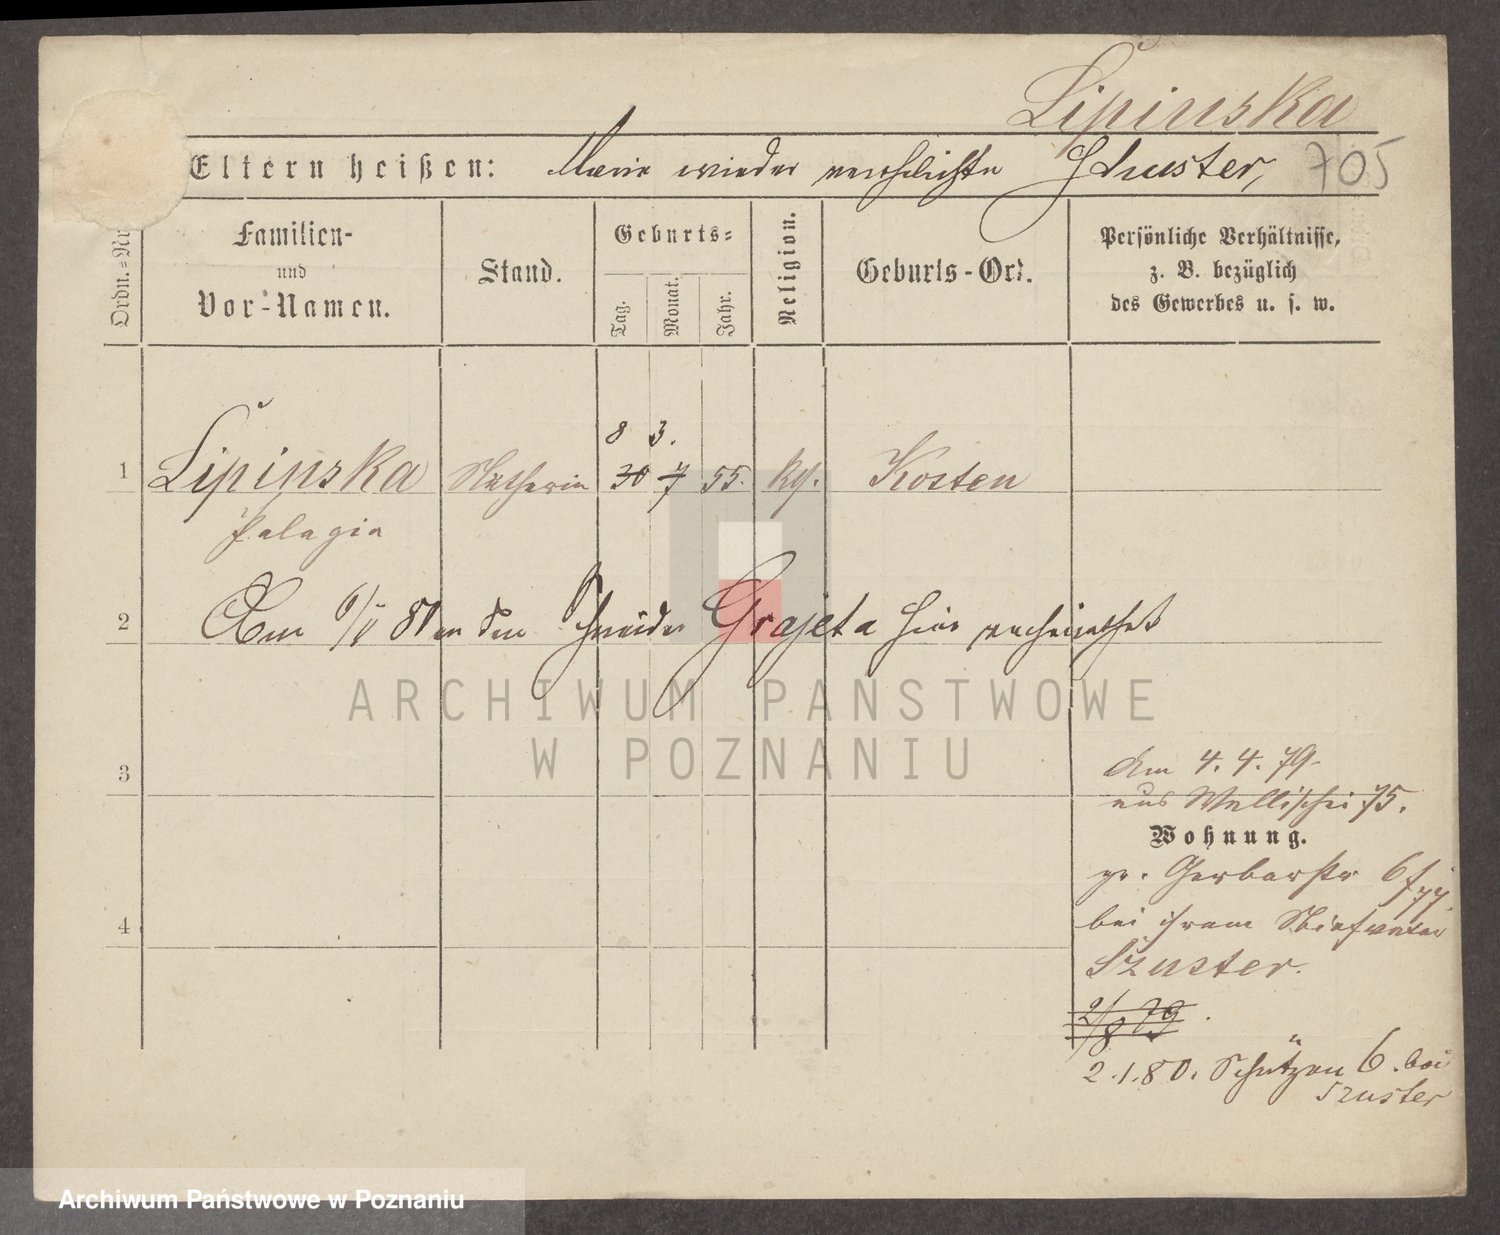 Lipinska
Eltern heißen: Marie wieder verehelichte Schuster, 705
Ordn.=Nr.
Familien-
und
Vor-Namen.
Stand.
Geburts=
Tag.
Monat.
Jahr.
Religion.
Geburts-Ort.
Persönliche Verhältnisse,
z. B. bezüglich
des Gewerbes u. s. w.
8 3.
1 Lipinska Nätherin 30 7 55. Kosten
Pelagia
2 Am den Schneider Grajeta hier verheirathet
ARCHIWUM PAŃSTWOWE
W POZNANIU
3
Am 4. 4. 79.
aus Wallischei 75.
Wohnung.
gr. Gerberstr
4
bei ihrem Stiefvater
Szuster.
2/8 79.
2.1.80. Schützen 6. bei
Szuster
Archiwum Państwowe w Poznaniu